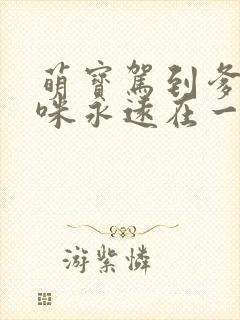 萌寶駕到爹
咪永遠在一
游紫憐